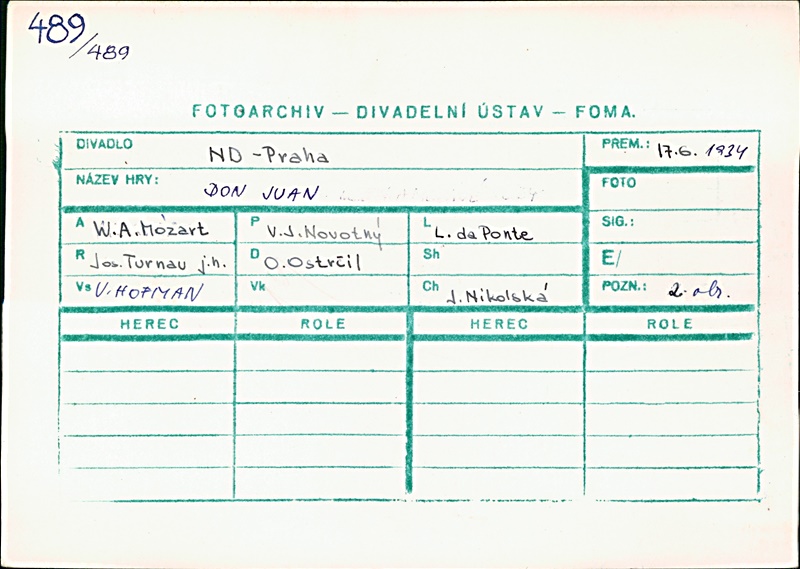 489
/489
FOTOARCHIV — DIVADELNÍ ÚSTAV — FOMA.
DIVADLO ND - Praha PREM.: 17.6. 1934
NÁZEV HRY: DON JUAN FOTO
A W.A. Mozart P V.J. Novotný L L. da Ponte SIG.:
R Jos. Turnau j.h. D O. Ostrčil Sh E/
Vs V. HOFMAN Vk Ch J. Nikolská POZN.: 2. obr.
HEREC ROLE HEREC ROLE